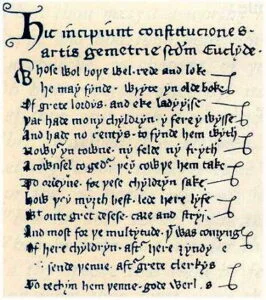 Hic incipiunt constituciones
artis gemetrie secundum Euclyde.
Whose wol boþe wel rede and loke
He may fynde wryte yn olde boke
Of grete lordys, and eke ladyysse
Þat hade mony chyldryn y fere y wysse
And hade no rentys to fynde hem wyth
Nowþer yn towne, ny felde ny fryth
A cownsel togeder þey cowþe hem take
To ordeyne for þese chyldryn sake
How þey myȝth best lede here lyfe
Withoute gret desese care and stryf
And most for þe multytude þat was comyng
Of here chyldryn after here ȝyndyng
sende þenne after grete clerkys
To techyn hem þenne gode werkys